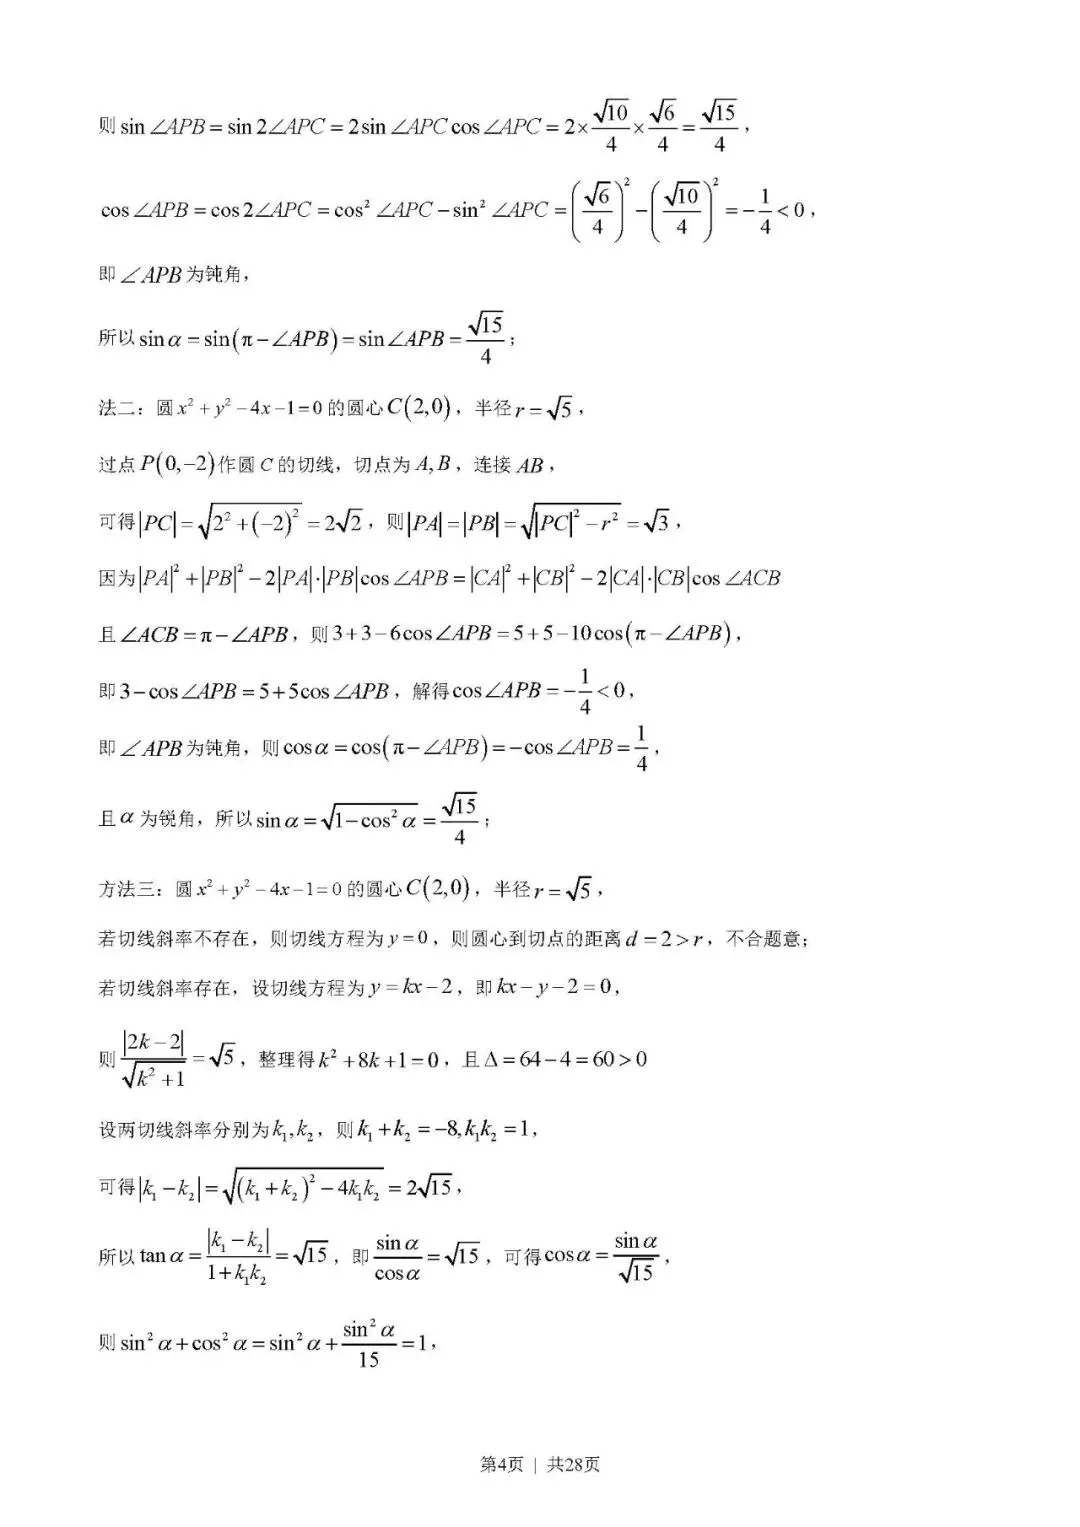 则 sin ∠APB = sin 2∠APC = 2sin ∠APC cos ∠APC = 2×√10/4×√6/4=√15/4，
cos ∠APB = cos 2∠APC = cos² ∠APC − sin² ∠APC = (√6/4)² − (√10/4)² = −1/4 < 0，
即 ∠APB 为钝角，
所以 sin α = sin(π − ∠APB) = sin ∠APB = √15/4；
法二：圆 x² + y² − 4x − 1 = 0 的圆心 C(2,0)，半径 r = √5，
过点 P(0,−2) 作圆 C 的切线，切点为 A, B，连接 AB，
可得 |PC| = √(2² + (−2)²) = 2√2，则 |PA| = |PB| = √(|PC|² − r²) = √3，
因为 |PA|² + |PB|² − 2|PA|·|PB|cos ∠APB = |CA|² + |CB|² − 2|CA|·|CB|cos ∠ACB
且 ∠ACB = π − ∠APB，则 3 + 3 − 6cos ∠APB = 5 + 5 − 10cos(π − ∠APB)，
即 3 − cos ∠APB = 5 + 5cos ∠APB，解得 cos ∠APB = −1/4 < 0，
即 ∠APB 为钝角，则 cos α = cos(π − ∠APB) = −cos ∠APB = 1/4，
且 α 为锐角，所以 sin α = √(1 − cos² α) = √15/4；
方法三：圆 x² + y² − 4x − 1 = 0 的圆心 C(2,0)，半径 r = √5，
若切线斜率不存在，则切线方程为 y = 0，则圆心到切点的距离 d = 2 > r，不合题意；
若切线斜率存在，设切线方程为 y = kx − 2，即 kx − y − 2 = 0，
则 |2k − 2|/√(k² + 1) = √5，整理得 k² + 8k + 1 = 0，且 Δ = 64 − 4 = 60 > 0
设两切线斜率分别为 k₁, k₂，则 k₁ + k₂ = −8, k₁k₂ = 1，
可得 |k₁ − k₂| = √((k₁ + k₂)² − 4k₁k₂) = 2√15，
所以 tan α = |k₁ − k₂|/(1 + k₁k₂) = √15，即 sin α/cos α = √15，可得 cos α = sin α/√15，
则 sin² α + cos² α = sin² α + sin² α/15 = 1，
第4页 | 共28页